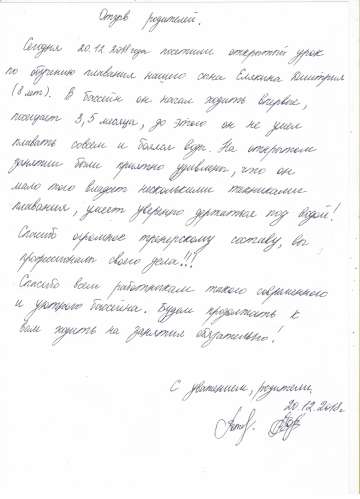 Отзыв родителей.
Сегодня 20.12.2018 года посетили открытый урок
по обучению плавания нашего сына Дмитрия
(8 лет). В бассейн он начал ходить впервые,
посещает 3,5 месяца, до этого он не умел
плавать совсем и боялся воды. На открытом
занятии были приятно удивлены, что он
мало того владеет несколькими техниками
плавания, умеет уверенно держаться под водой!
Спасибо огромное тренерскому составу, вы
профессионалы своего дела!!!
Спасибо всем работникам такого современного
и уютного бассейна. Будем продолжать к
вам ходить на занятия обязательно!
С уважением, родители,
20.12.2018г.